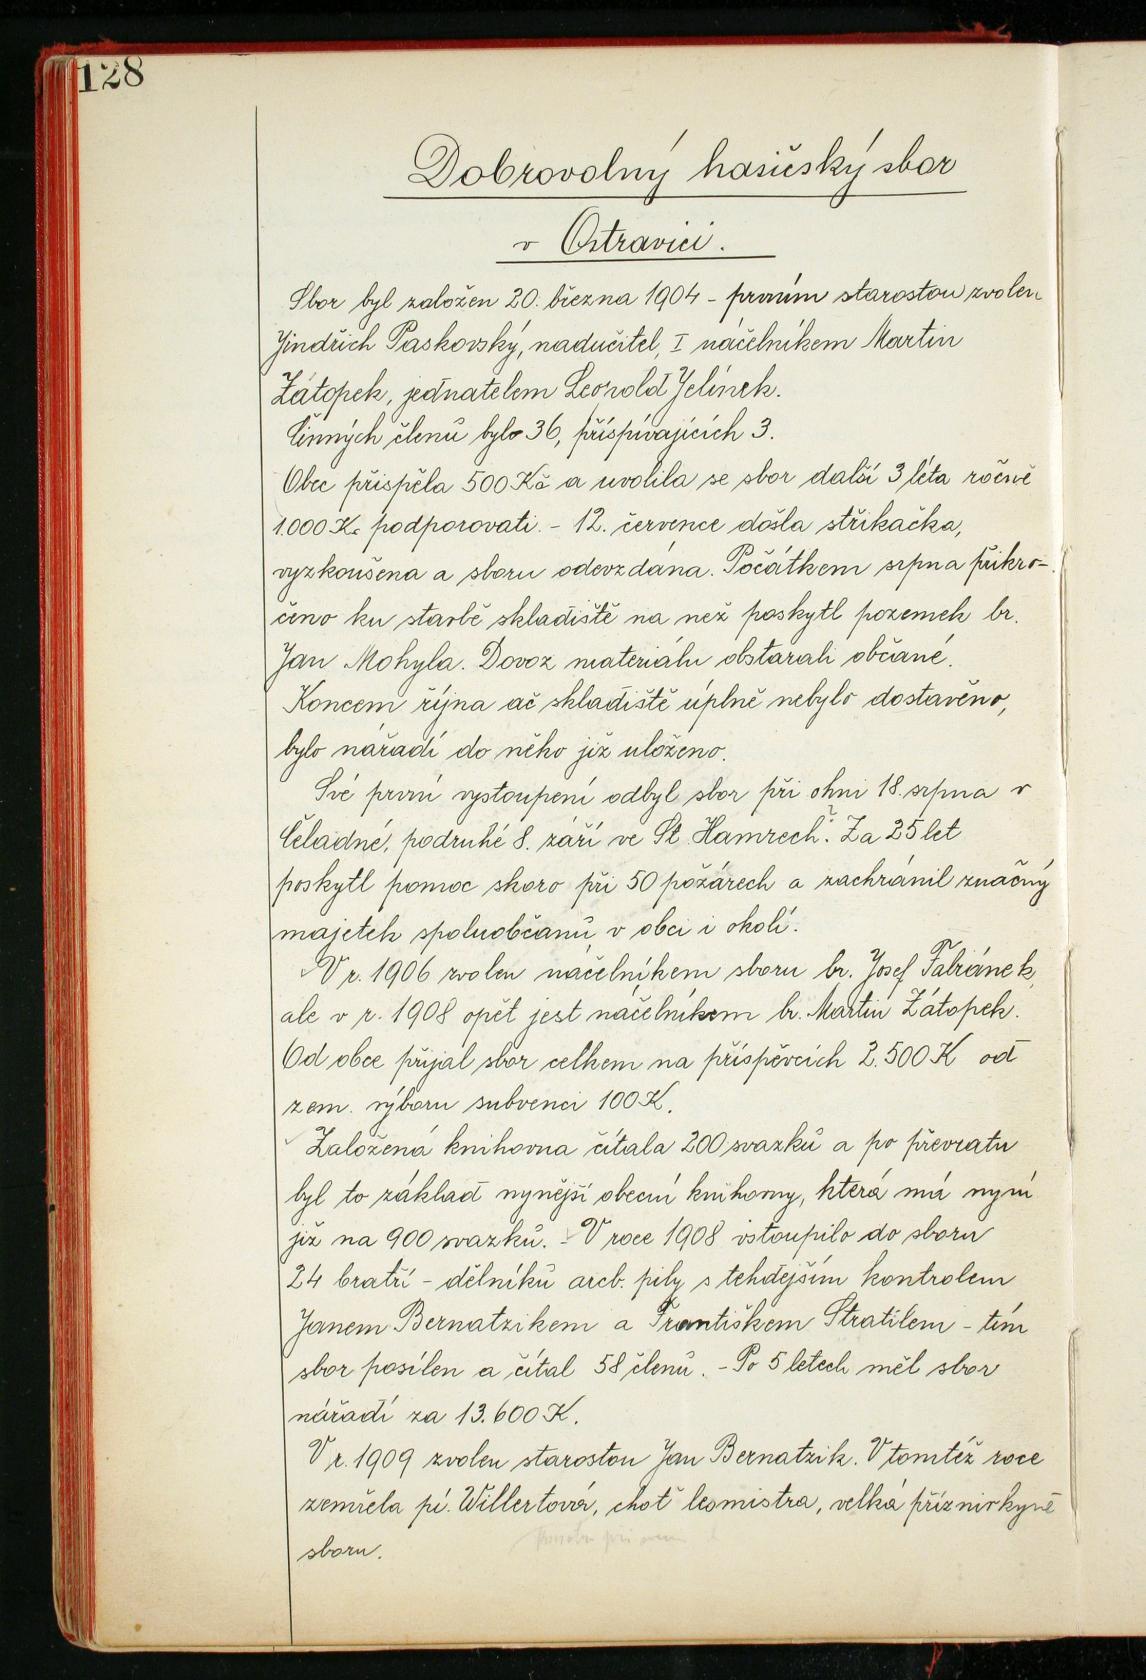 128
Dobrovolný hasičský sbor
v Ostravici.
Sbor byl založen 20. března 1904 - prvním starostou zvolen
Jindřich Paskovský, nadučitel, I náčelníkem Martin
Zátopek, jednatelem Leopold Jelínek.
Činných členů bylo 36, příspívajících 3.
Obec přispěla 500 Kč a uvolila se sbor další 3 léta ročně
1.000 Kč podporovati. - 12. července došla stříkačka,
vyzkoušena a sboru odevzdána. Počátkem srpna přikro-
čeno ku stavbě skladiště na než poskytl pozemek br.
Jan Mohyla. Dovoz materiálu obstarali občané.
Koncem října ač skladiště úplně nebylo dostavěno,
bylo nářadí do něho již uloženo.
Své první vystoupení odbyl sbor při ohni 18. srpna v
Čeladné, podruhé 8. září ve St. Hamrech. Za 25 let
poskytl pomoc skoro při 50 požárech a zachránil značný
majetek spoluobčanů v obci i okolí.
V r. 1906 zvolen náčelníkem sboru br. Josef Fabiánek,
ale v r. 1908 opět jest náčelníkem br. Martin Zátopek.
Od obce přijal sbor celkem na příspěvcích 2.500 K od
zem. výboru subvenci 100 K.
Založená knihovna čítala 200 svazků a po převratu
byl to základ nynější obecní knihovny, která má nyní
již na 900 svazků. - V roce 1908 vstoupilo do sboru
24 bratří - dělníků arcb. pily s tehdejším kontrolem
Janem Bernatzikem a Františkem Stratilem - tím
sbor posílen a čítal 58 členů. - Po 5 letech měl sbor
nářadí za 13.600 K.
V r. 1909 zvolen starostou Jan Bernatzik. V tomtéž roce
zemřela pí. Willertová, choť lesmistra, velká příznivkyně
sboru.